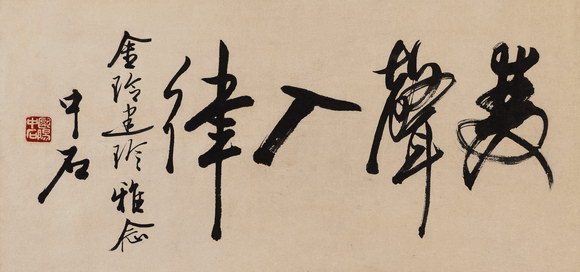 美聲入律
金玲建玲雅念
中石
歐陽中石